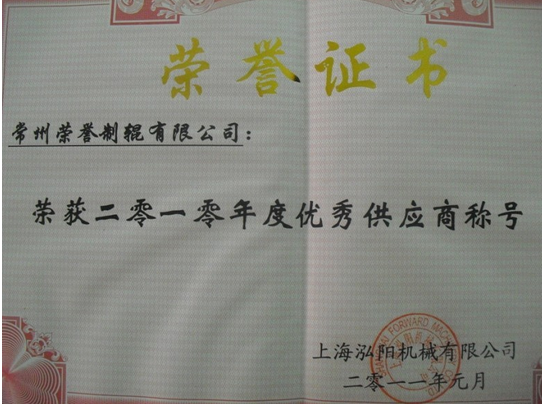 荣誉证书
常州荣誉制辊有限公司：
荣获二零一零年度优秀供应商称号
上海泓阳机械有限公司
二零一一年元月